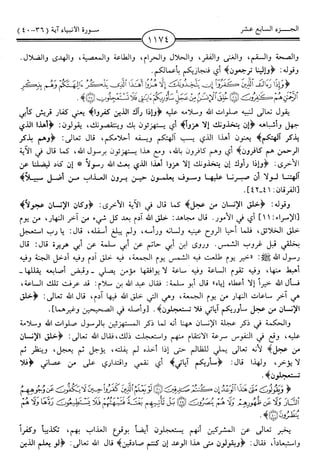 الجـزء السابع عشر
١١٧٤
سورة الأنبياء آية (٣٦-٤٠)
والصحة والسقم، والغنى والفقر، والحلال والحرام، والطاعة والمعصية، والهدى والضلال.
وقوله: ﴿وإلينا ترجعون﴾ أي فنجازيكم بأعمالكم.
﴿ وَإِذَا رَآكَ الَّذِينَ كَفَرُوا إِن يَتَّخِذُونَكَ إِلَّا هُزُوًا أَهَٰذَا الَّذِي يَذْكُرُ آلِهَتَكُمْ وَهُم بِذِكْرِ
الرَّحْمَٰنِ هُمْ كَافِرُونَ ﴿٣٦﴾ خُلِقَ الْإِنسَانُ مِنْ عَجَلٍ سَأُرِيكُمْ آيَاتِي فَلَا تَسْتَعْجِلُونِ ﴿٣٧﴾﴾
يقول تعالى لنبيه صلوات الله وسلامه عليه ﴿وإذا رآك الذين كفروا﴾ يعني كفار قريش كأبي
جهل وأشباهه ﴿إن يتخذونك إلا هزواً﴾ أي يستهزئون بك وينتقصونك، يقولون: ﴿أهذا الذي
يذكر آلهتكم﴾ يعنون أهذا الذي يسب آلهتكم ويسفه أحلامكم، قال تعالى: ﴿وهم بذكر
الرحمن هم كافرون﴾ أي وهم كافرون بالله، ومع هذا يستهزئون برسول الله، كما قال في الآية
الأخرى: ﴿وإذا رأوك إن يتخذونك إلا هزوا أهذا الذي بعث الله رسولاً * إن كاد ليضلنا عن
آلهتنـا لـولا أن صبرنـا عليهـا وسـوف يعلمـون حيـن يـرون العـذاب مـن أضـل سبيـلاً﴾
[الفرقان: ٤١-٤٢].
وقوله: ﴿خلق الإنسان من عجل﴾ كما قال في الآية الأخرى: ﴿وكان الإنسان عجولاً﴾
[الإسراء: ١١] أي في الأمور. قال مجاهد: خلق الله آدم بعد كل شيء من آخر النهار، من يوم
خلق الخلائق، فلما أحيا الروح عينيه ولسانه ورأسه، ولم يبلغ أسفله، قال: يا رب استعجل
بخلقي قبل غروب الشمس. وروى ابن أبي حاتم عن أبي سلمة عن أبي هريرة قال: قال
رسول الله ﷺ: «خير يوم طلعت فيه الشمس يوم الجمعة، فيه خلق آدم وفيه أدخل الجنة وفيه
أهبط منها، وفيه تقوم الساعة وفيه ساعة لا يوافقها مؤمن يصلي - وقبض أصابعه يقللها -
فسأل الله خيراً إلا أعطاه إياه» قال أبو سلمة: فقال عبد الله بن سلام: قد عرفت تلك الساعة،
هي آخر ساعات النهار من يوم الجمعة، وهي التي خلق الله فيها آدم، قال الله تعالى: ﴿خلق
الإنسان من عجل سأوريكم آياتي فلا تستعجلون﴾. [وأصله في الصحيحين وغيرهما].
والحكمة في ذكر عجلة الإنسان ههنا أنه لما ذكر المستهزئين بالرسول صلوات الله وسلامة
عليه، وقع في النفوس سرعة الانتقام منهم واستعجلت ذلك، فقال الله تعالى: ﴿خلق الإنسان
من عجل﴾ لأنه تعالى يملي للظالم حتى إذا أخذه لم يفلته، يؤجل ثم يعجل، وينظر ثم
لا يؤخر، ولهذا قال: ﴿سأريكم آياتي﴾ أي نقمي واقتداري على من عصاني ﴿فلا
تستعجلون﴾.
﴿ وَيَقُولُونَ مَتَىٰ هَٰذَا الْوَعْدُ إِن كُنتُمْ صَادِقِينَ ﴿٣٨﴾ لَوْ يَعْلَمُ الَّذِينَ كَفَرُوا حِينَ لَا يَكُفُّونَ عَن وُجُوهِهِمُ
النَّارَ وَلَا عَن ظُهُورِهِمْ وَلَا هُمْ يُنصَرُونَ ﴿٣٩﴾ بَلْ تَأْتِيهِم بَغْتَةً فَتَبْهَتُهُمْ فَلَا يَسْتَطِيعُونَ رَدَّهَا وَلَا هُمْ
يُنظَرُونَ ﴿٤٠﴾﴾
يخبر تعالى عن المشركين أنهم يستعجلون أيضاً بوقوع العذاب بهم، تكذيباً وكفراً
واستبعاداً، فقال: ﴿ويقولون متى هذا الوعد إن كنتم صادقين﴾ قال الله تعالى: ﴿لو يعلم الذين